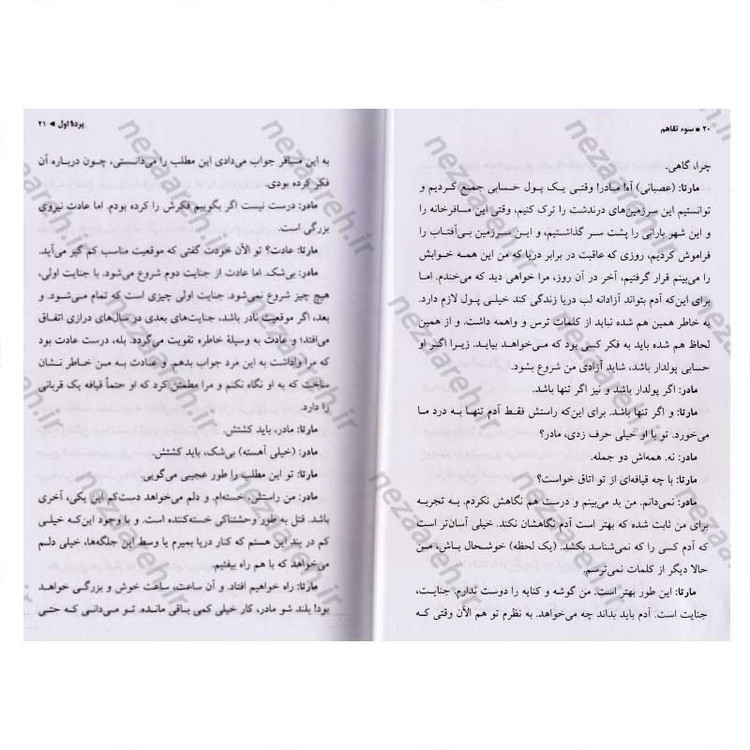 ۲۰ ■ سوء تفاهم
چرا، گاهی.
مارتا: (عصبانی) آه! مادر! وقتی یک پول حسابی جمع کردیم و
توانستیم این سرزمین‌های درندشت را ترک کنیم، وقتی این مسافرخانه را
و این شهر بارانی را پشت سر گذاشتیم، و این سرزمین بی‌آفتاب را
فراموش کردیم، روزی که عاقبت در برابر دریا که من این همه خوابش
را می‌بینم قرار گرفتیم، آخر در آن روز، مرا خواهی دید که می‌خندم. اما
برای این‌که آدم بتواند آزادانه لب دریا زندگی کند خیلی پول لازم دارد.
به خاطر همین هم شده نباید از کلمات ترس و واهمه داشت. و از همین
لحاظ هم شده باید به فکر کسی بود که می‌خواهد بیاید. زیرا اگر او
حسابی پولدار باشد، شاید آزادی من شروع بشود.
مادر: اگر پولدار باشد و نیز اگر تنها باشد.
مارتا: و اگر تنها باشد. برای این‌که راستش فقط آدم تنها به درد ما
می‌خورد. تو با او خیلی حرف زدی، مادر؟
مادر: نه. همه‌اش دو جمله.
مارتا: با چه قیافه‌ای از تو اتاق خواست؟
مادر: نمی‌دانم. من بد می‌بینم و درست هم نگاهش نکردم. به تجربه
برای من ثابت شده که بهتر است آدم نگاهشان نکند. خیلی آسان‌تر است
که آدم کسی را که نمی‌شناسد بکشد. (یک لحظه) خوشحال باش، من
حالا دیگر از کلمات نمی‌ترسم.
مارتا: این طور بهتر است. من گوشه و کنایه را دوست ندارم. جنایت،
جنایت است. آدم باید بداند چه می‌خواهد. به نظرم تو هم الآن وقتی که
پردهٔ اول ◄ ۲۱
به این مسافر جواب می‌دادی این مطلب را می‌دانستی، چون درباره آن
فکر کرده بودی.
مادر: درست نیست اگر بگوییم فکرش را کرده بودم. اما عادت نیروی
بزرگی است.
مارتا: عادت؟ تو الآن خودت گفتی که موقعیت مناسب کم گیر می‌آید.
مادر: بی‌شک. اما عادت از جنایت دوم شروع می‌شود. با جنایت اولی،
هیچ چیز شروع نمی‌شود. جنایت اولی چیزی است که تمام می‌شود. و
بعد، اگر موقعیت نادر باشد، جنایت‌های بعدی در سال‌های درازی اتفاق
می‌افتد؛ و عادت به وسیلهٔ خاطره تقویت می‌گردد. بله، درست عادت بود
که مرا واداشت به این مرد جواب بدهم و عادت به من خاطر نشان
ساخت که به او نگاه نکنم و مرا مطمئن کرد که او حتماً قیافه یک قربانی
را دارد.
مارتا: مادر، باید کشتش.
مادر: (خیلی آهسته) بی‌شک، باید کشتش.
مارتا: تو این مطلب را طور عجیبی می‌گویی.
مادر: من راستش. خسته‌ام. و دلم می‌خواهد دست‌کم این یکی، آخری
باشد. قتل به طور وحشتناکی خسته‌کننده است. و با وجود این‌که خیلی
کم در بند این هستم که کنار دریا بمیرم یا وسط این جلگه‌ها، خیلی دلم
می‌خواهد که با هم راه بیفتیم.
مارتا: راه خواهیم افتاد. و آن ساعت، ساعت خوش و بزرگی خواهد
بود! بلند شو مادر، کار خیلی کمی باقی مانده. تو می‌دانی که حتی